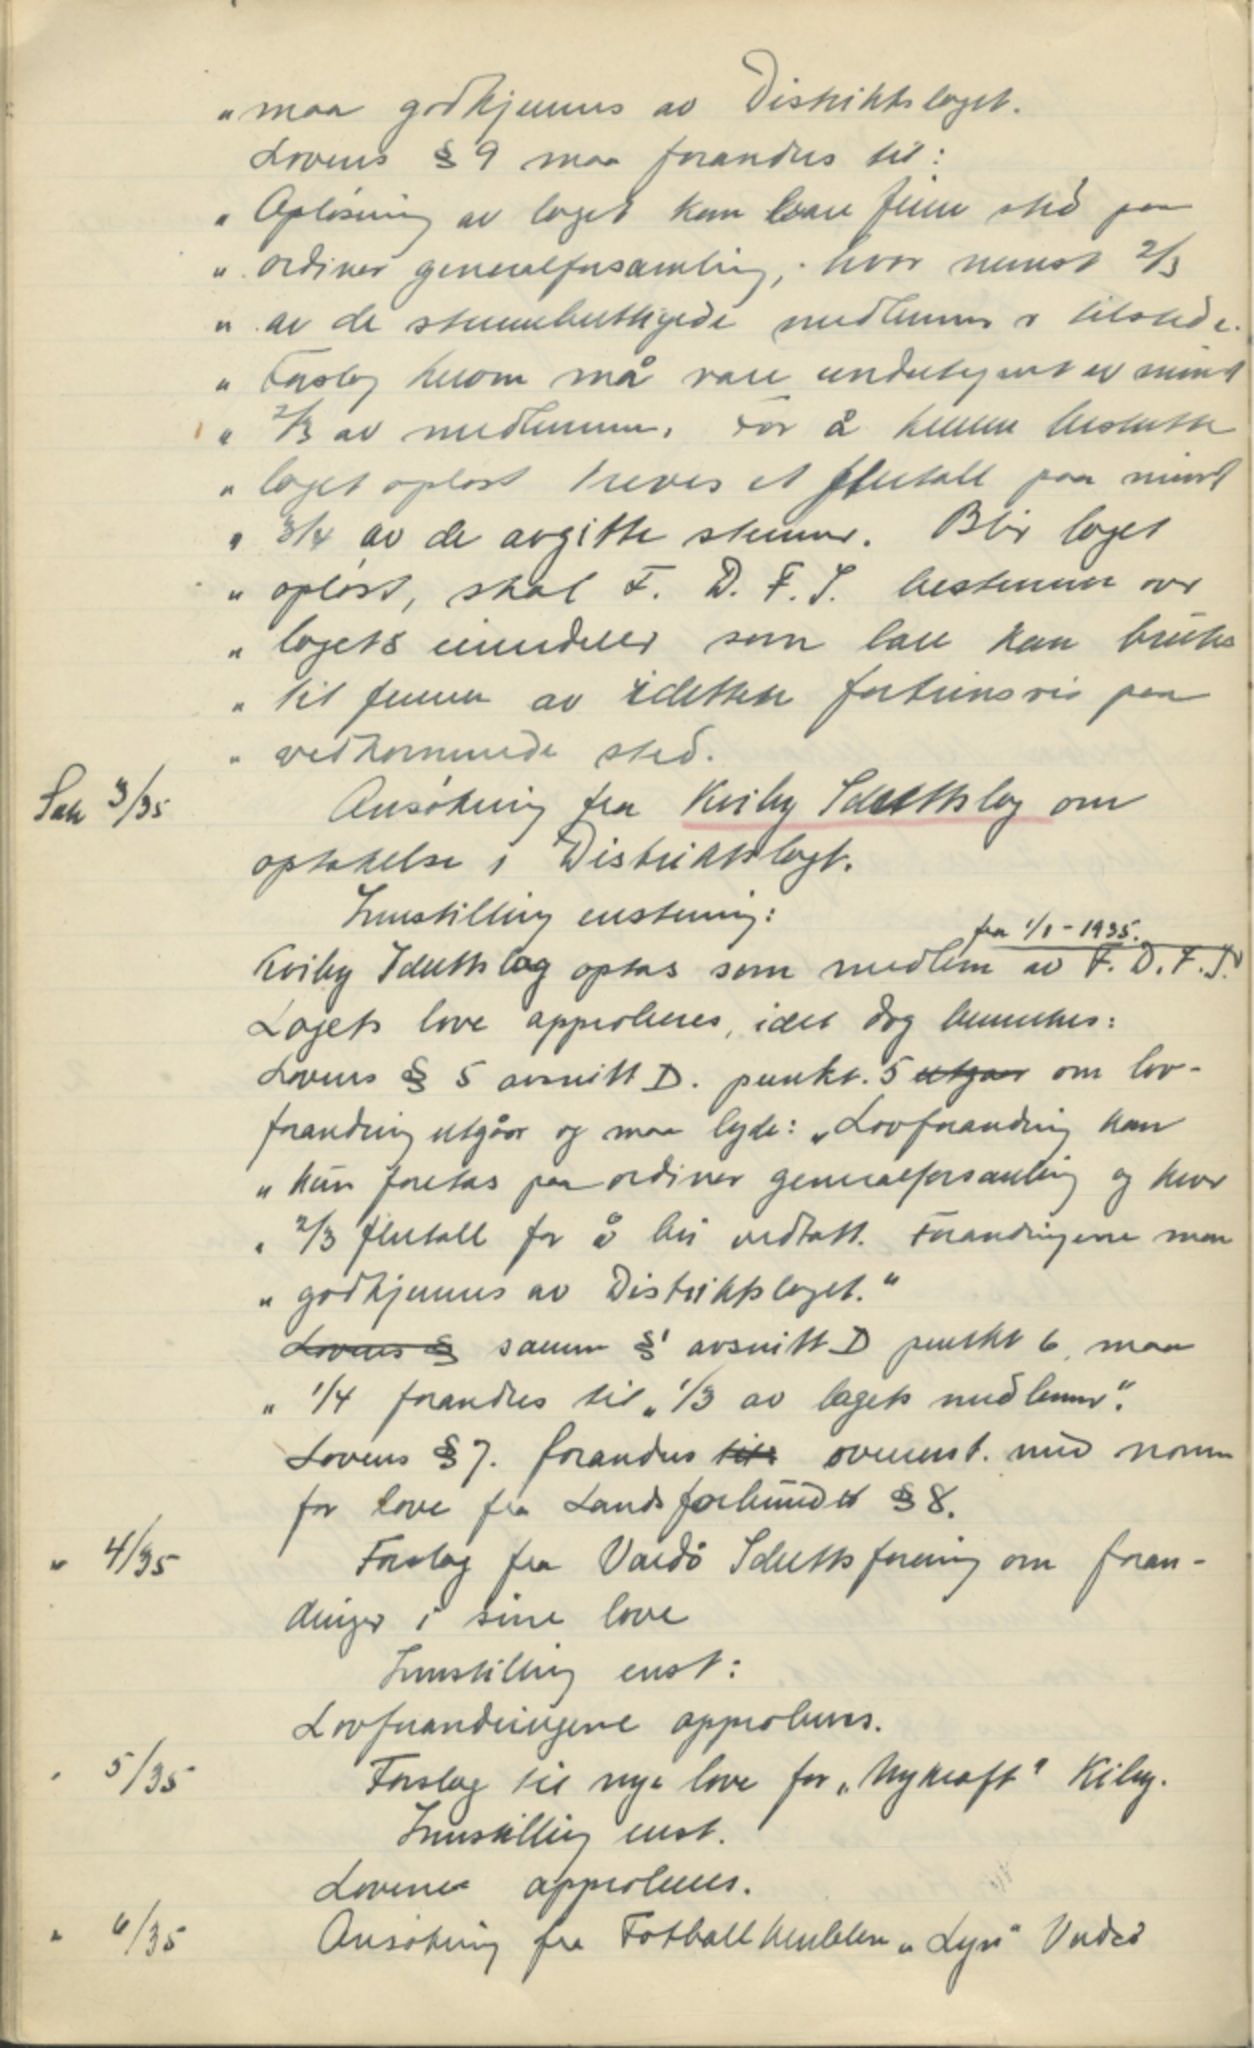 „ maa godkjennes av Distriktslaget.
Lovens § 9 maa forandres til:
„ Opløsning av laget kan bare finne sted paa
„ ordinær generalforsamling, hvor minst 2/3
„ av de stemmeberettigede medlemmer er tilstede.
„ Forslag herom må være undertegnet av minst
„ 2/3 av medlemmene. For å kunne beslutte
„ laget opløst kreves et flertall paa minst
„ 3/4 av de avgitte stemmer. Blir laget
„ opløst, skal F. D. F. I. bestemme over
„ lagets eiendeler som bare kan brukes
„ til fremme av idretten fortrinsvis paa
„ vedkommende sted.
Sak 3/35 Ansøkning fra Kviby Idrettslag om
optakelse i Distriktslaget.
Innstilling enstemmig:
fra 1/1 - 1935.
Kviby Idrettslag optas som medlem av F. D. F. I.
Lagets love approberes, idet dog bemerkes:
Lovens § 5 avsnitt D. punkt. 5 utgaar om lov-
forandring utgåar og maa lyde: „Lovforandring kan
„ kun foretas paa ordinær generalforsamling og krever
„ 2/3 flertall for å bli vedtatt. Forandringene maa
„ godkjennes av Distriktslaget."
Lovens § samme § avsnitt D punkt 6 maa
„ 1/4 forandres til „1/3 av lagets medlemmer".
Lovens § 7. forandres til overenst. med norm
for love fra Landsforbundet § 8.
„ 4/35 Forslag fra Vardø Idrettsforening om foran-
dringer i sine love
Innstilling enst:
Lovforandringene approberes.
„ 5/35 Forslag til nye love for „Nykraft" Kiby.
Innstilling enst.
Lovene approberes.
„ 6/35 Ansøkning fra Fotballklubben „Lyn" Vadsø